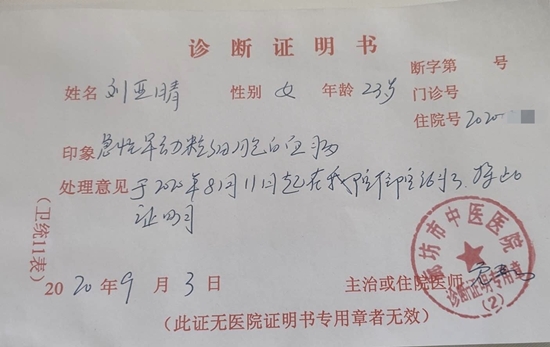 诊断证明书
断字第 号
姓名 刘亚晴 性别 女 年龄 23岁 门诊号
住院号 2020-
印象 急性早幼粒细胞白血病
处理意见 于2020年8月11日起在我院住院治疗，特此
证明
(卫统11表)
2020年9月3日 主治或住院医师
廊坊市中医医院
诊断证明专用章
(2)
(此证无医院证明书专用章者无效)